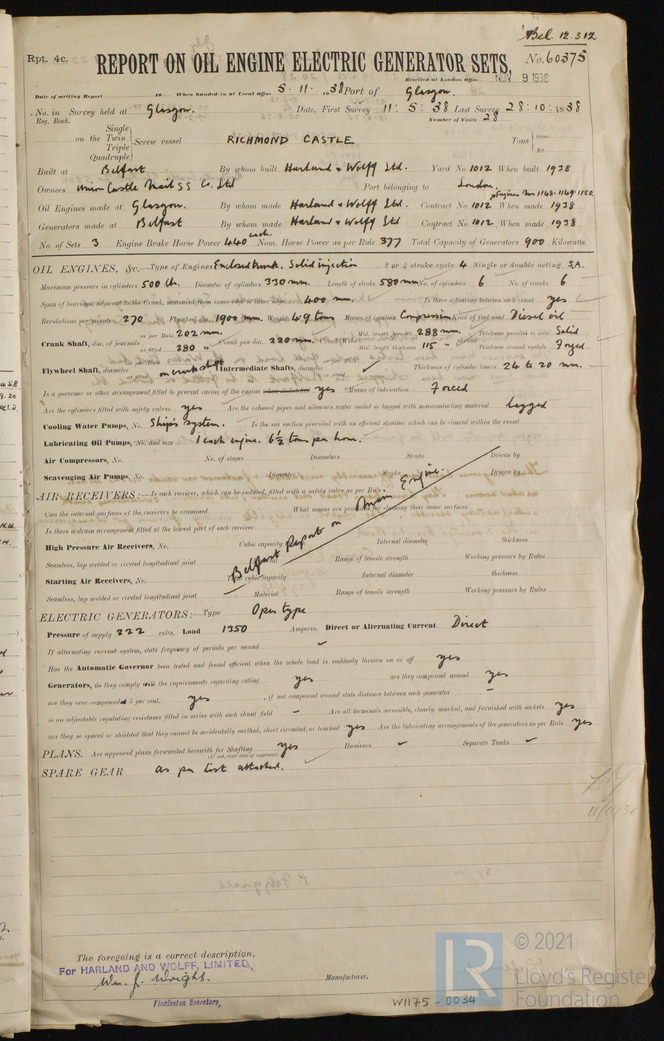 Bel. 12.312
Rpt. 4c.
REPORT ON OIL ENGINE ELECTRIC GENERATOR SETS.
No. 60375
Received at London Office NOV 9 1938
Date of writing Report 19 When handed in at Local Office 5·11·1938 Port of Glasgow.
No. in Reg. Book. Survey held at Glasgow. Date, First Survey 11:5:38 Last Survey 28:10:1938
Number of Visits 28
on the Single Twin Triple Quadruple Screw vessel RICHMOND CASTLE Tons Gross Net
Built at Belfast By whom built Harland & Wolff Ltd. Yard No. 1012 When built 1938
Owners Union Castle Mail S S Co. Ltd Port belonging to London
Engines Nos 1148·1149·1150
Oil Engines made at Glasgow. By whom made Harland & Wolff Ltd. Contract No. 1012 When made 1938
Generators made at Belfast By whom made Harland & Wolff Ltd Contract No. 1012 When made 1938
No. of Sets 3 Engine Brake Horse Power 440 each. Nom. Horse Power as per Rule 377 Total Capacity of Generators 900 Kilowatts.
OIL ENGINES, &c.—Type of Engines Enclosed trunk. Solid injection 2 or 4 stroke cycle 4 Single or double acting S.A.
Maximum pressure in cylinders 500 lb. Diameter of cylinders 330 mm. Length of stroke 580 mm No. of cylinders 6 No. of cranks 6
Span of bearings, adjacent to the Crank, measured from inner edge to inner edge 400 mm. Is there a bearing between each crank yes
Revolutions per minute 270 Flywheel dia. 1900 mm. Weight 4.9 tons Means of ignition Compression Kind of fuel used Diesel oil
Crank Shaft, dia. of journals as per Rule 202 mm. as fitted 280 " Crank pin dia. 220 mm. Crank Webs Mid. length breadth 288 mm. Thickness parallel to axis Solid
Mid. length thickness 115 " Thickness around eyehole Forged
Flywheel Shaft, diameter as per Rule on crankshaft Intermediate Shafts, diameter as per Rule as fitted Thickness of cylinder liners 24 to 20 mm.
Is a governor or other arrangement fitted to prevent racing of the engine yes Means of lubrication Forced
Are the cylinders fitted with safety valves yes Are the exhaust pipes and silencers water cooled or lagged with non-conducting material lagged
Cooling Water Pumps, No. Ship's system. Is the sea suction provided with an efficient strainer which can be cleared within the vessel
Lubricating Oil Pumps, No. and size 1 each engine. 6½ tons per hour.
Air Compressors, No. No. of stages Diameters Stroke Driven by
Scavenging Air Pumps, No. Diameter Stroke Driven by
AIR RECEIVERS:—Is each receiver, which can be isolated, fitted with a safety valve as per Rule
Can the internal surfaces of the receivers be examined What means are provided for cleaning their inner surfaces
Is there a drain arrangement fitted at the lowest part of each receiver
Belfast Report on Main Engine.
High Pressure Air Receivers, No. Cubic capacity Internal diameter thickness
Seamless, lap welded or riveted longitudinal joint Material Range of tensile strength Working pressure by Rules
Starting Air Receivers, No. Total cubic capacity Internal diameter thickness
Seamless, lap welded or riveted longitudinal joint Material Range of tensile strength Working pressure by Rules
ELECTRIC GENERATORS:—Type Open type
Pressure of supply 222 volts. Load 1350 Amperes. Direct or Alternating Current Direct
If alternating current system, state frequency of periods per second
Has the Automatic Governor been tested and found efficient when the whole load is suddenly thrown on or off yes
Generators, do they comply with the requirements regarding rating yes are they compound wound yes
are they over compounded 5 per cent. yes , if not compound wound state distance between each generator –
is an adjustable regulating resistance fitted in series with each shunt field – Are all terminals accessible, clearly marked, and furnished with sockets yes
are they so spaced or shielded that they cannot be accidentally earthed, short circuited, or touched yes Are the lubricating arrangements of the generators as per Rule yes
PLANS. Are approved plans forwarded herewith for Shafting yes Receivers Separate Tanks
(If not, state date of approval)
SPARE GEAR as per list attached.
The foregoing is a correct description,
For HARLAND AND WOLFF, LIMITED,
Wm. J. Wright. Manufacturer.
Finnieston Secretary.
W1175-0034
LR
© 2021
Lloyd's Register
Foundation